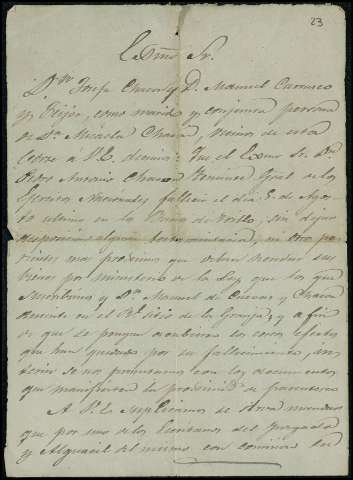 23
Exmo. Sr.
Dn. Josefa Chacon y D. Manuel Carrasco
y Feijoo, como marido y conjunta persona
de Da. Micaela Chacon, vecinos de esta
Corte a V.E. decimos: Que el Exmo Sr. Dn.
Pedro Antonio Chacon Teniente Gral de los
Egercitos Nacionales falleció el dia 5 de Agos-
to ultimo en la de sin dejar
disposicion alguna testamentaria, ni otros pa-
rientes mas proximos que deban heredar sus
bienes por ministerio de la Ley que los que
suscribimos y Dn. Manuel de Cuevas y Chacon
ausente en el Rl. Sitio de la Granja; y a fin
de que se ponga a cubierto los efectos
que han quedado por su fallecimiento, 
se no presentamos con los documentos
que manifiestan la proximidad de parentesco
A V.E. suplicamos se sirva mandar
que por uno de los Escribanos del Juzgado
y Alguacil del mismo con